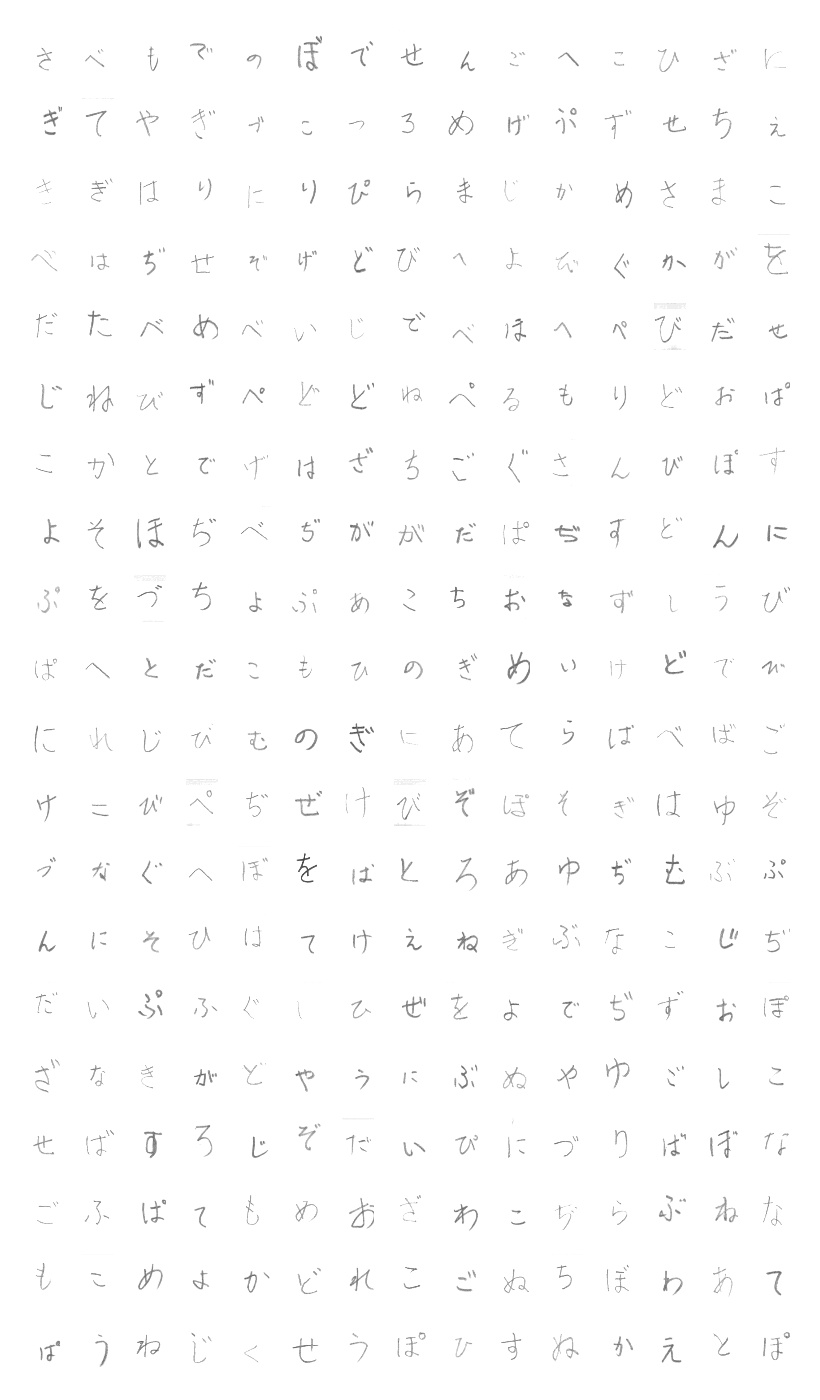 さべもでのぼでせんごへこひざに
ぎてやぎづこつろめげぷずせちえ
きぎはりにりぴらまじかめさまこ
べはぢせぞげどびへよびぐかがを
だたべめべいじでべほへぺびだせ
じねびずぺどどねぺるもりどおぱ
こかとでげはざちごぐさんびぽす
よそほぢべぢががだぱぢすどんに
ぷをづちよぷあこちおなずしうび
ぱへとだこもひのぎめいけどでび
にれじびむのぎにあてらばべばご
けこびぺぢぜけびぞぽそぎはゆぞ
づなぐへぼをばとろあゆぢむぶぷ
んにそひはてけえねぎぶなこじぢ
だいぷふぐしひぜをよでぢずおぽ
ざなきがどやうにぶぬやゆごしこ
せばすろじぞだいぴにづりばぼな
ごふぱてもめおざわこぢらぶねな
もこめよかどれこごぬちぼわあて
ぱうねじくせうぽひすぬかえとぽ